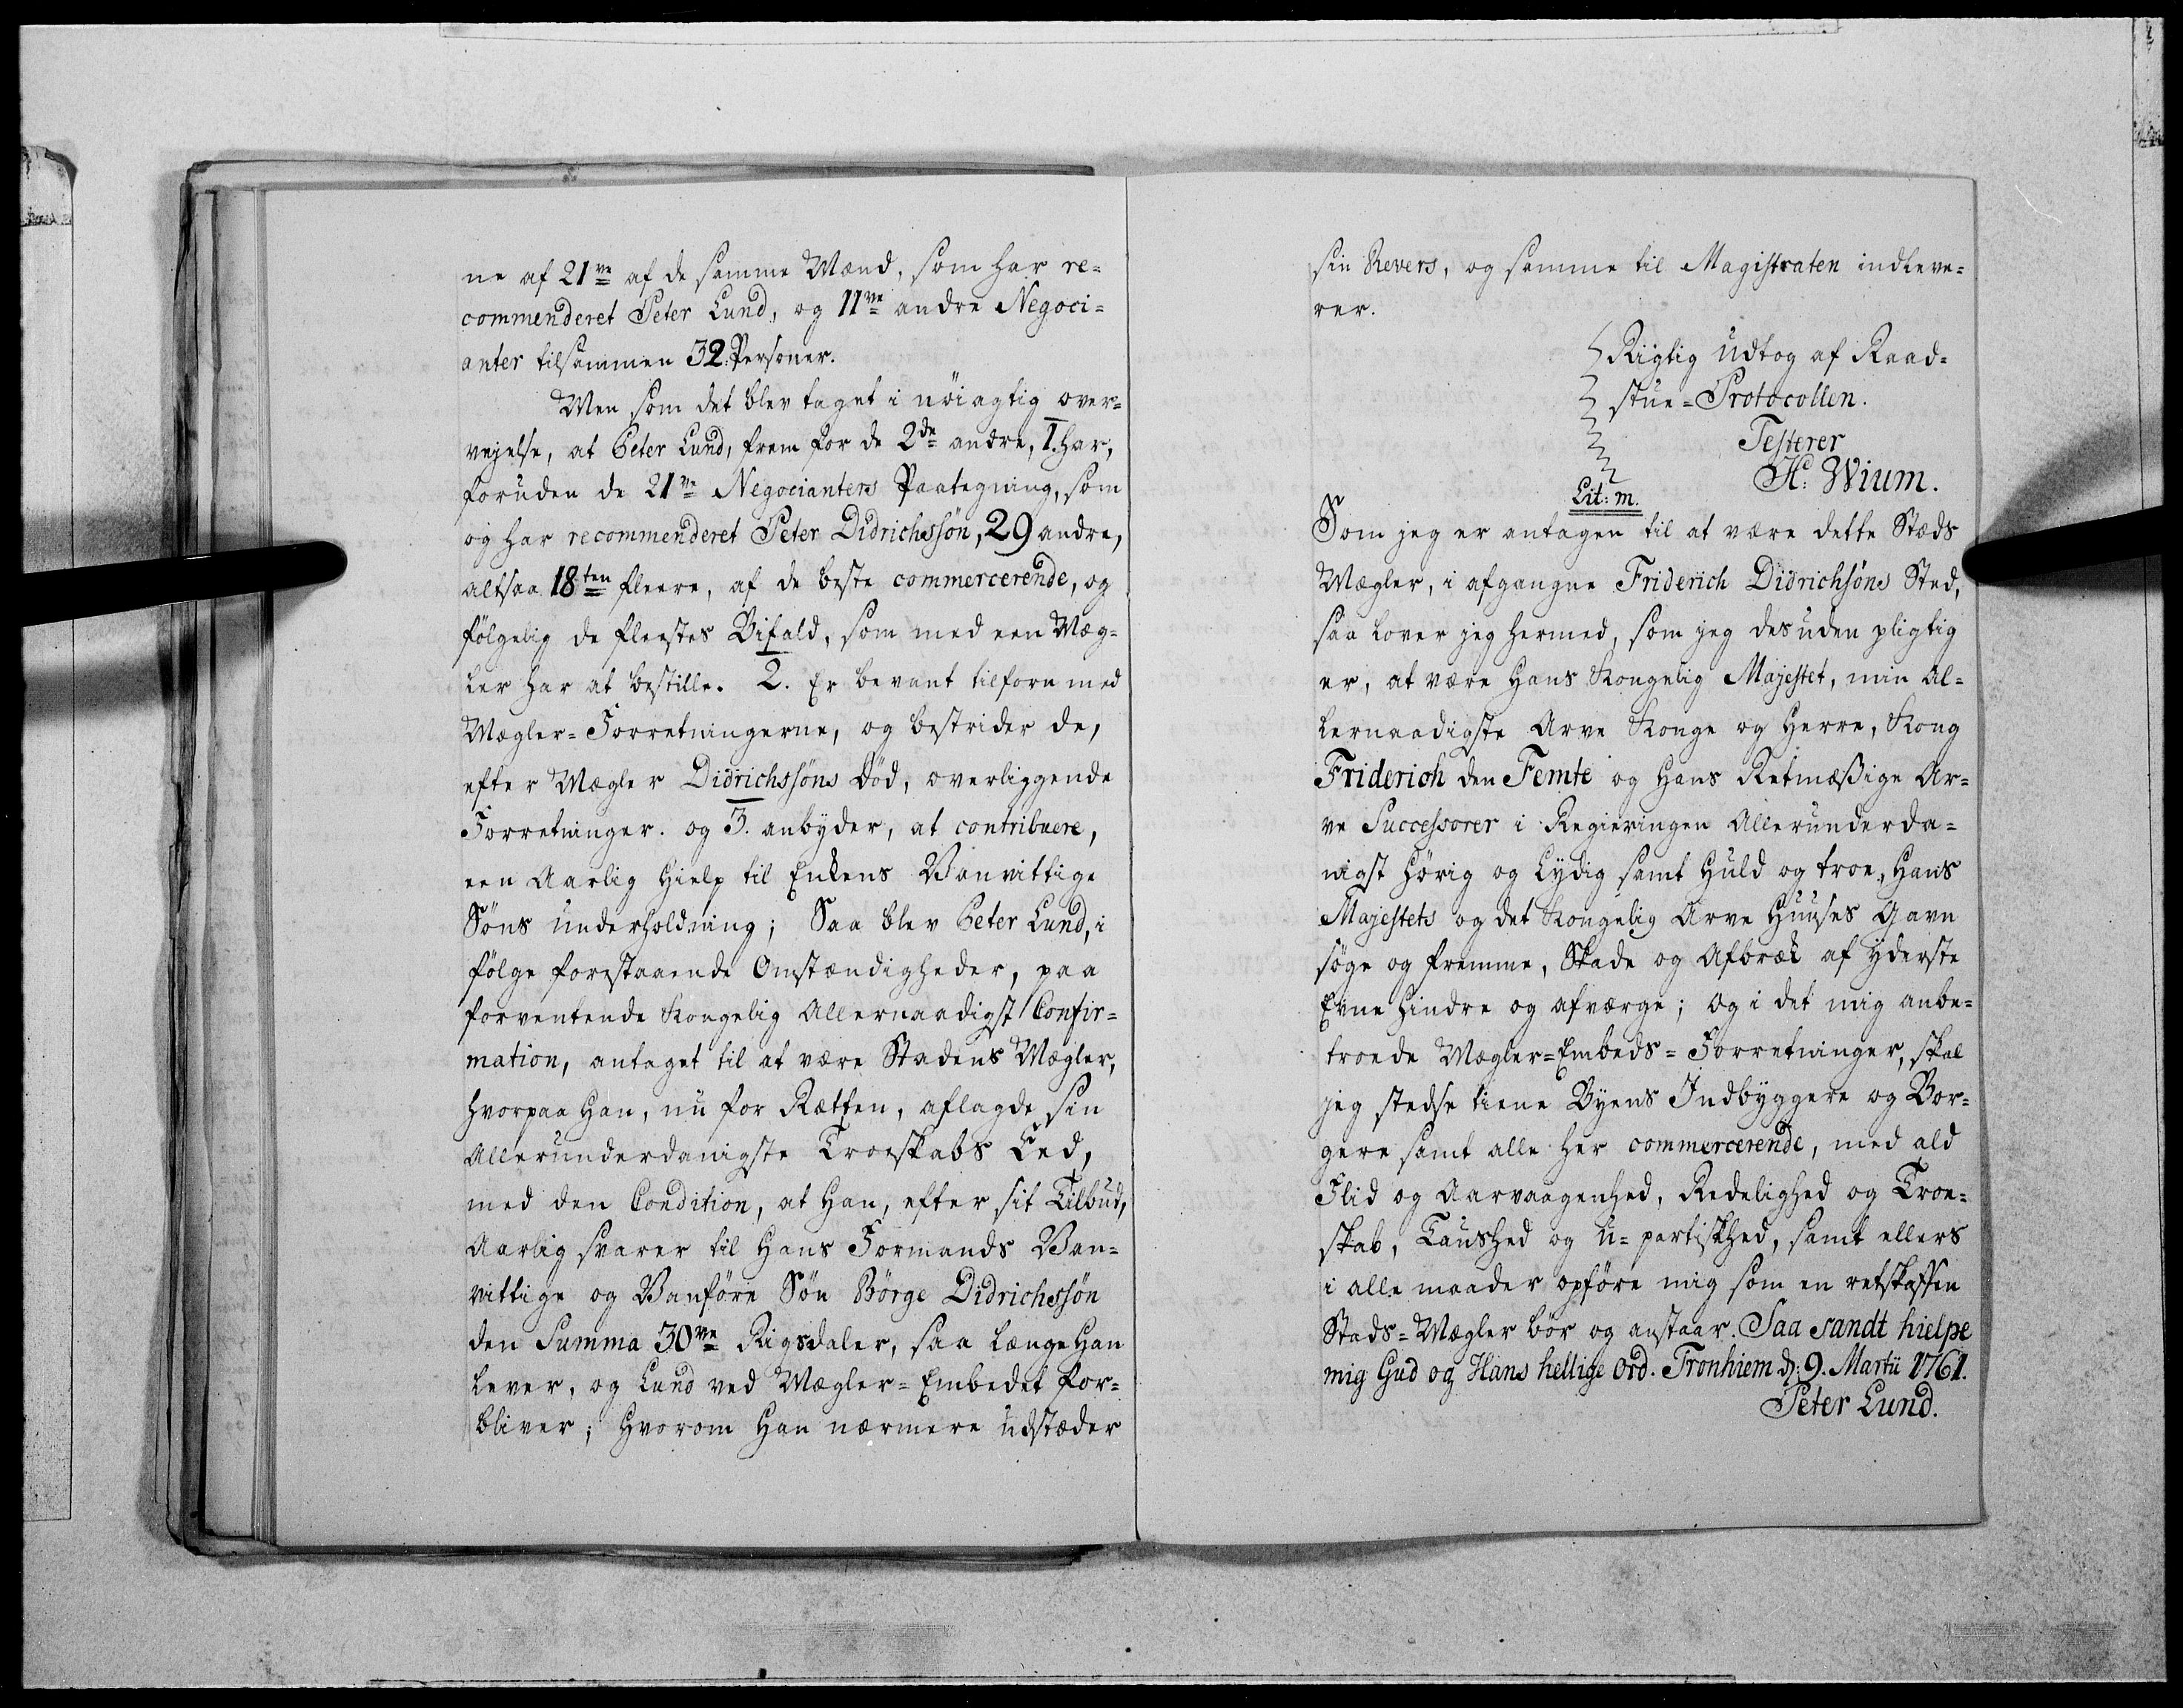 ne af 21ve af de samme Mænd, som har re=
commenderet Peter Lund, og 11ve andre Negoci=
anter tilsammen 32. Personer.
Men som det blev taget i nöiagtig over=
vejelse, at Peter Lund, frem for de 2de andre, 1. har,
foruden de 21ve Negocianters Paategning, som
og har recommenderet Peter Didrichssön, 29 andre,
altsaa 18ten fleere, af de beste commercerende, og
fölgelig de fleestes Bifald, som med een Mæg=
ler har at bestille. 2. Er bevant tilforn med
Mægler=Forretningerne, og bestrider de,
efter Mægler Didrichssöns Död, overliggende
Forretninger. og 3. anbyder, at contribuere,
een Aarlig Hielp til Enkens Vanvittige
Söns underholdning; Saa blev Peter Lund, i
fölge forestaaende Omstændigheder, paa
forventende Kongelig Allernaadigst Confir=
mation, antaget til at være Stadens Mægler,
hvorpaa Han, nu for Rætten, aflagde sin
Allerunderdanigste Troeskabs Eed,
med den Condition, at Han, efter sit Tilbud,
Aarlig svarer til Hans Formands Van=
vittige og Vanföre Sön Börge Didrichssön
den Summa 30ve Rigsdaler, saa længe Han
lever, og Lund ved Mægler=Embedet for=
bliver; hvorom Han nærmere udstæder
sin Revers, og samme til Magistraten indleve=
rer.
Rigtig Udtog af Raad=
stue=Protocollen.
Testerer
H: Wium.
Lit: m.
Som jeg er antagen til at være dette Stæds
Mægler, i afgangne Friderich Didrichsöns Sted,
saa lover jeg hermed, som jeg desuden pligtig
er, at være Hans Kongelig Majestet, min Al=
lernaadigste Arve Konge og Herre, Kong
Friderich den Femte og Hans Retmæßige Ar=
ve Successorer i Regieringen Allerunderda=
nigst hörig og Lydig samt Huld og troe, Hans
Majestets og det Kongelig Arve Huuses Gavn
söge og fremme, Skade og Afbræk af yderste
Evne hindre og afværge; og i det mig anbe=
troede Mægler=Embeds=Forretninger, skal
jeg stedse tiene Byens Indbyggere og Bor=
gere samt alle her commercerende, med ald
Flid og Aarvaagenhed, Redelighed og Troe=
skab, Taushed og u=partiskhed, samt ellers
i alle maader opföre mig som en retskaffen
Stads=Mægler bör og anstaar. Saa sandt hielpe
mig Gud og Hans hellige Ord. Tronhiem d: 9. Martii 1761.
Peter Lund.